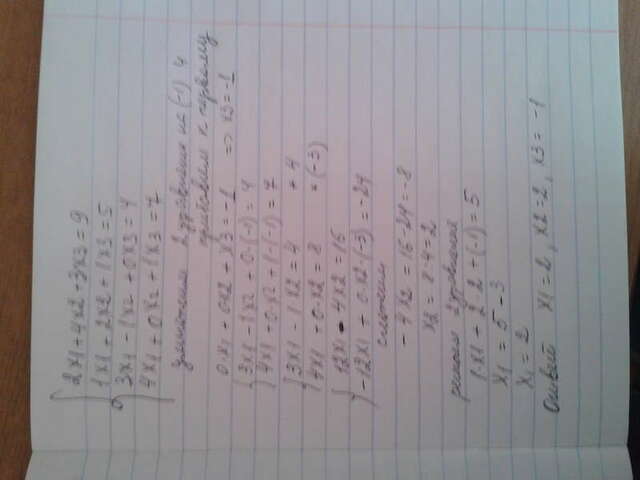 2x1+4x2-3x3=9
1x1+2x2+1x3=5
3x1-1x2+0x3=4
4x1+0x2+1x3=7
умножением 2 уравнения на (-1) и
прибавим к первому
0·x1+0x2+1x3=-1 => x3=-1
3x1-1x2+0·(-1)=4
4x1+0·x2+1·(-1)=7
3x1-1x2=4 ×4
4x1+0·x2=8 ×(-3)
12x1-4x2=16
-12x1+0·x2·(-3)=-24
сложим
-4x2=16-24=-8
x2=8:4=2
решим 2 уравнение
1·x1+2·2+(-1)=5
x1=5-3
x1=2
Ответ x1=2, x2=2, x3=-1